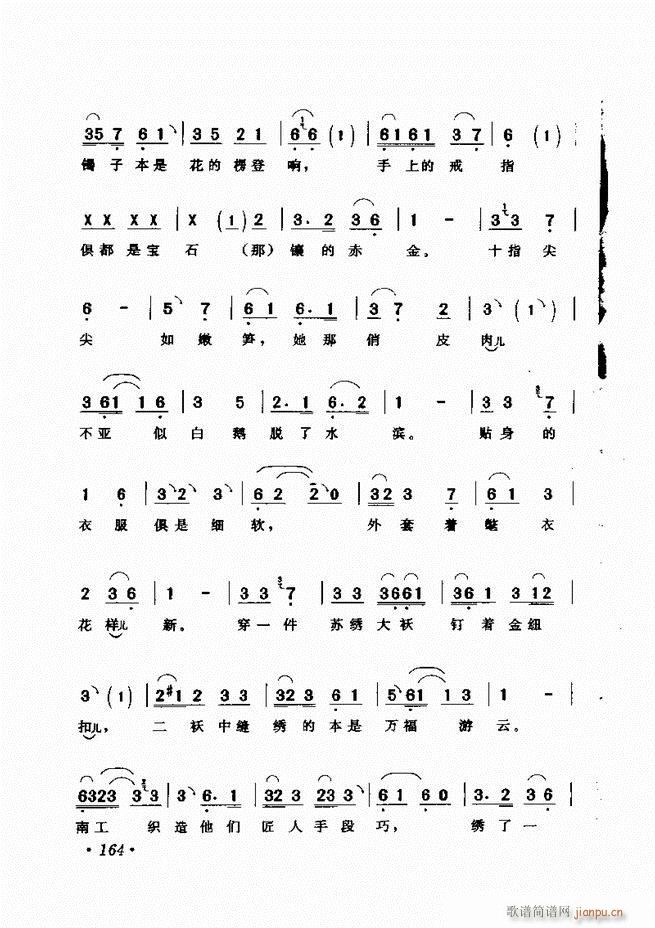 3 5 7 6 1 | 3 5 2 1 | 6 6 (1) | 6 1 6 1 3 7 | 6 (1) |
镯子本是 花的楞登响， 手上的戒 指
X X X X | X (1) 2 | 3. 2 3 6 | 1 - | 3 3 7 |
俱都是宝 石 （那）镶的赤 金。 十指尖
6 - | 5 7 | 6 1 6. 1 | 3 7 2 | 3 (1) |
尖 如嫩 笋，她那俏 皮 肉儿
3 6 1 1 6 | 3 5 | 2. 1 6. 2 | 1 - | 3 3 7 |
不亚 似白 鹅脱了水 滨。 贴身的
1 6 | 3 2 3 | 6 2 2 0 | 3 2 3 7 | 6 1 3 |
衣服 俱是细 软， 外套着 氅 衣
2 3 6 | 1 - | 3 3 7 | 3 3 3 6 6 1 | 3 6 1 3 1 2 |
花样儿 新。 穿一件 苏绣大袄 钉着金纽
3 (1) | 2 #1 2 3 3 | 3 2 3 6 1 | 5 6 1 1 3 | 1 - |
扣儿， 二 袄中缝 绣的本是 万福 游 云。
6 3 2 3 3 3 | 3 6. 1 | 3 2 3 2 3 3 | 6 1 6 0 | 3. 2 3 6 |
南工 织造他们 匠人手段 巧， 绣了一
· 164 ·
歌谱简谱网 jianpu.cn